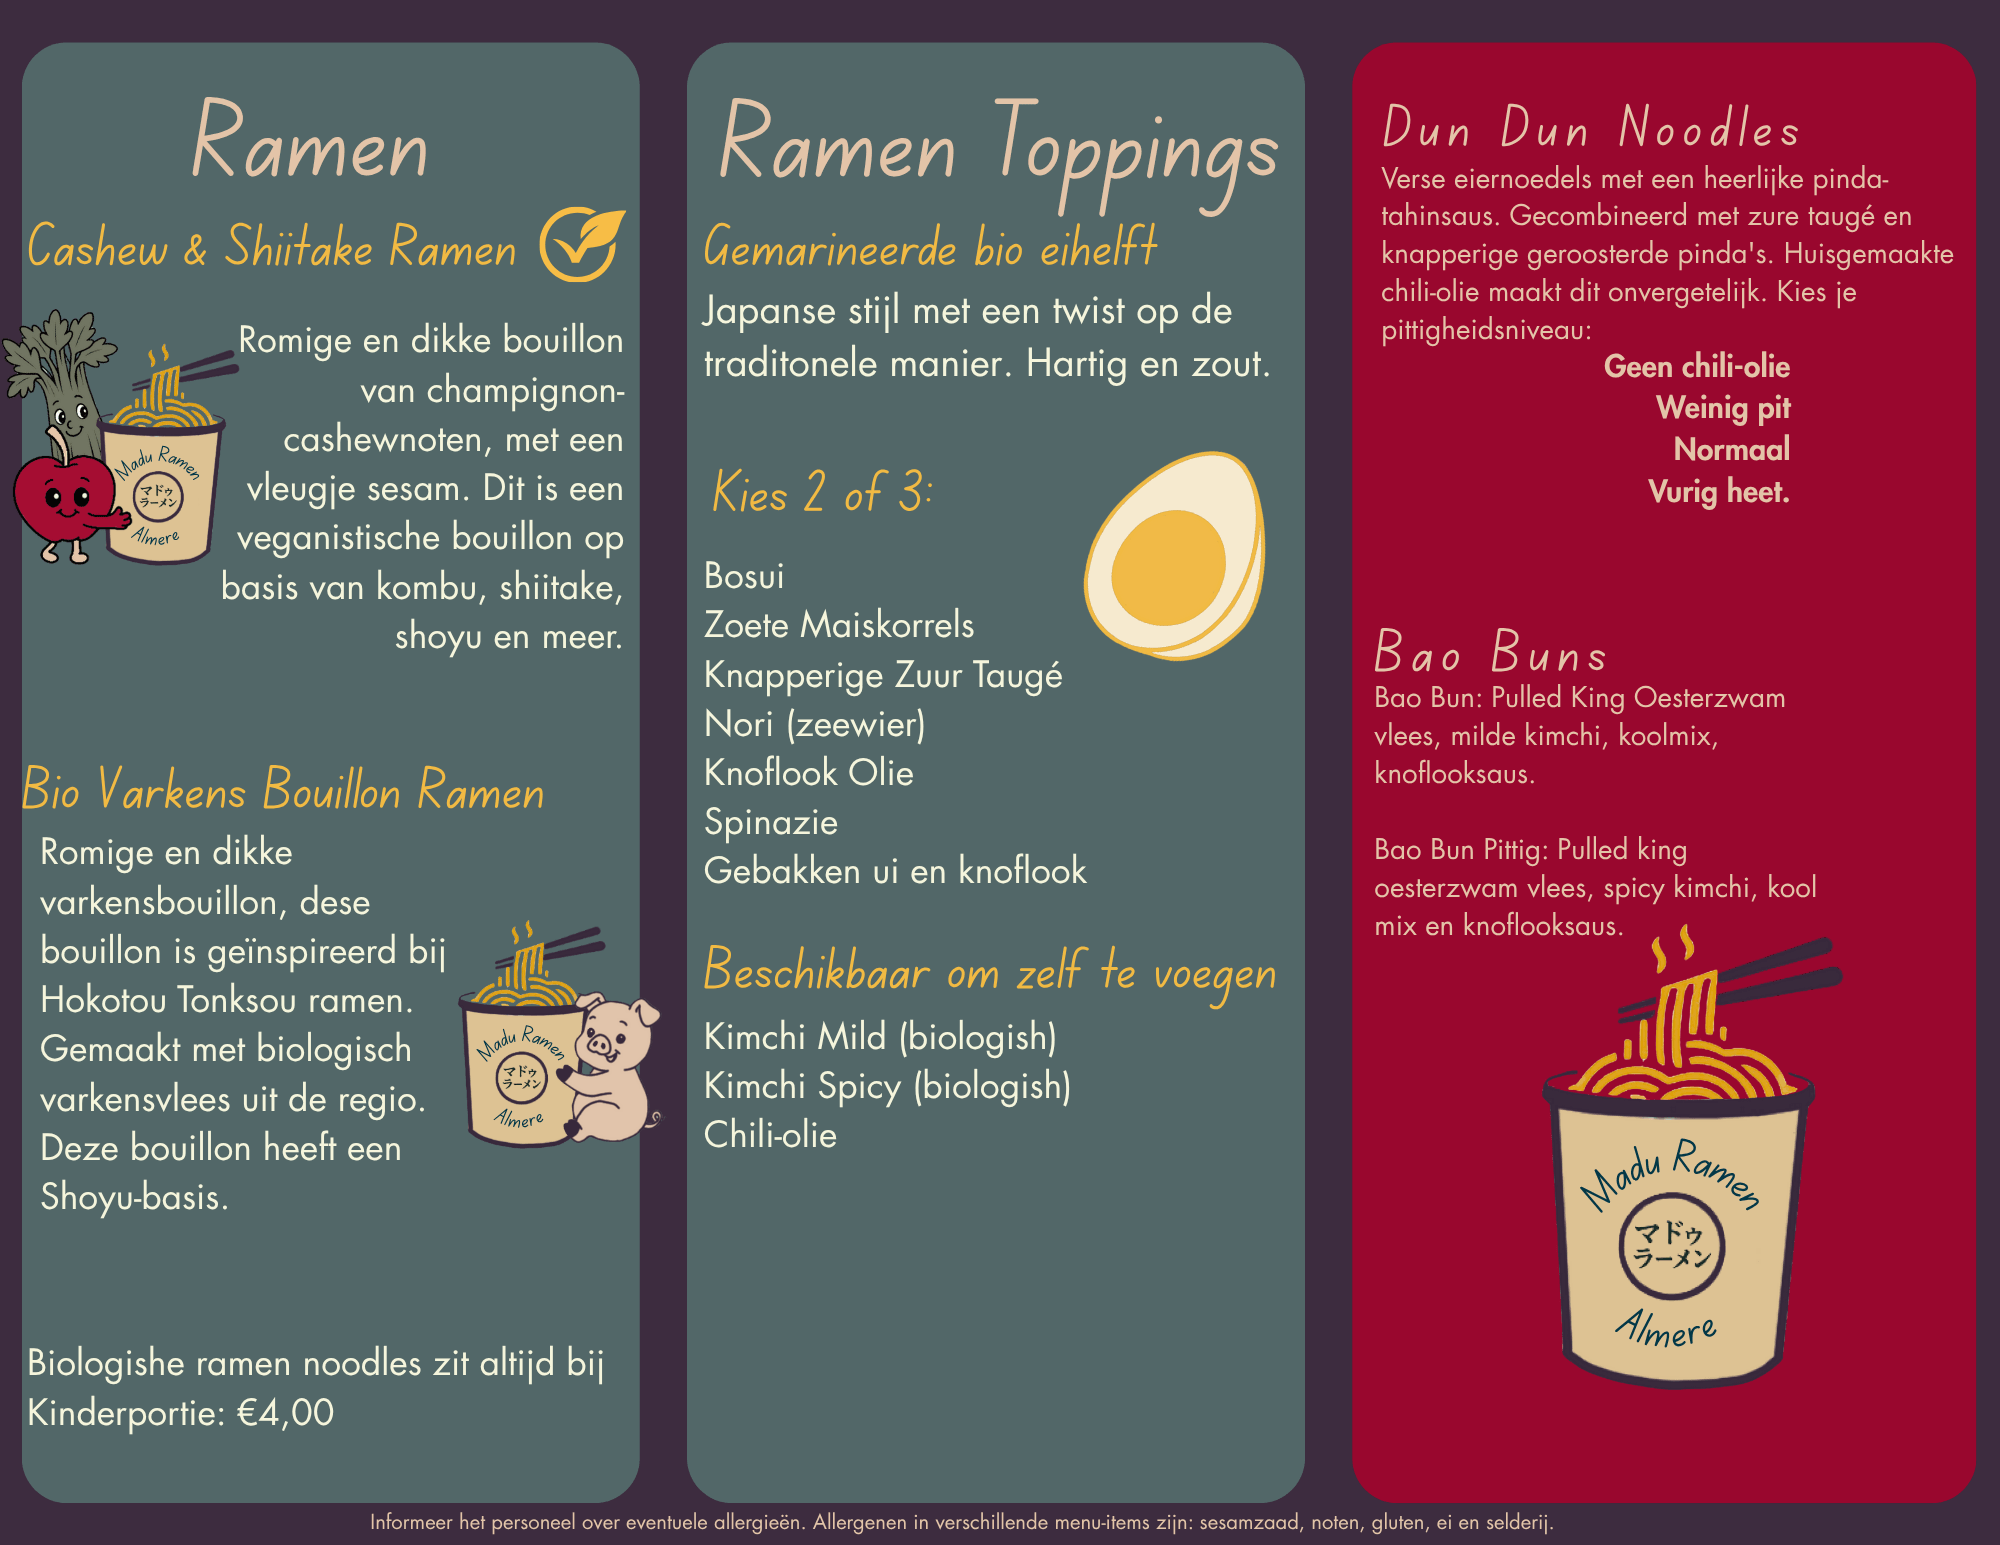 Ramen
Cashew & Shiitake Ramen
Romige en dikke bouillon
van champignon-
cashewnoten, met een
vleugje sesam. Dit is een
veganistische bouillon op
basis van kombu, shiitake,
shoyu en meer.
Madu Ramen
マドゥ
ラーメン
Almere
Bio Varkens Bouillon Ramen
Romige en dikke
varkensbouillon, dese
bouillon is geïnspireerd bij
Hokotou Tonksou ramen.
Gemaakt met biologisch
varkensvlees uit de regio.
Deze bouillon heeft een
Shoyu-basis.
Madu Ramen
マドゥ
ラーメン
Almere
Biologishe ramen noodles zit altijd bij
Kinderportie: €4,00
Ramen Toppings
Gemarineerde bio eihelft
Japanse stijl met een twist op de
traditonele manier. Hartig en zout.
Kies 2 of 3:
Bosui
Zoete Maiskorrels
Knapperige Zuur Taugé
Nori (zeewier)
Knoflook Olie
Spinazie
Gebakken ui en knoflook
Beschikbaar om zelf te voegen
Kimchi Mild (biologish)
Kimchi Spicy (biologish)
Chili-olie
Dun Dun Noodles
Verse eiernoedels met een heerlijke pinda-
tahinsaus. Gecombineerd met zure taugé en
knapperige geroosterde pinda's. Huisgemaakte
chili-olie maakt dit onvergetelijk. Kies je
pittigheidsniveau:
Geen chili-olie
Weinig pit
Normaal
Vurig heet.
Bao Buns
Bao Bun: Pulled King Oesterzwam
vlees, milde kimchi, koolmix,
knoflooksaus.
Bao Bun Pittig: Pulled king
oesterzwam vlees, spicy kimchi, kool
mix en knoflooksaus.
Madu Ramen
マドゥ
ラーメン
Almere
Informeer het personeel over eventuele allergieën. Allergenen in verschillende menu-items zijn: sesamzaad, noten, gluten, ei en selderij.